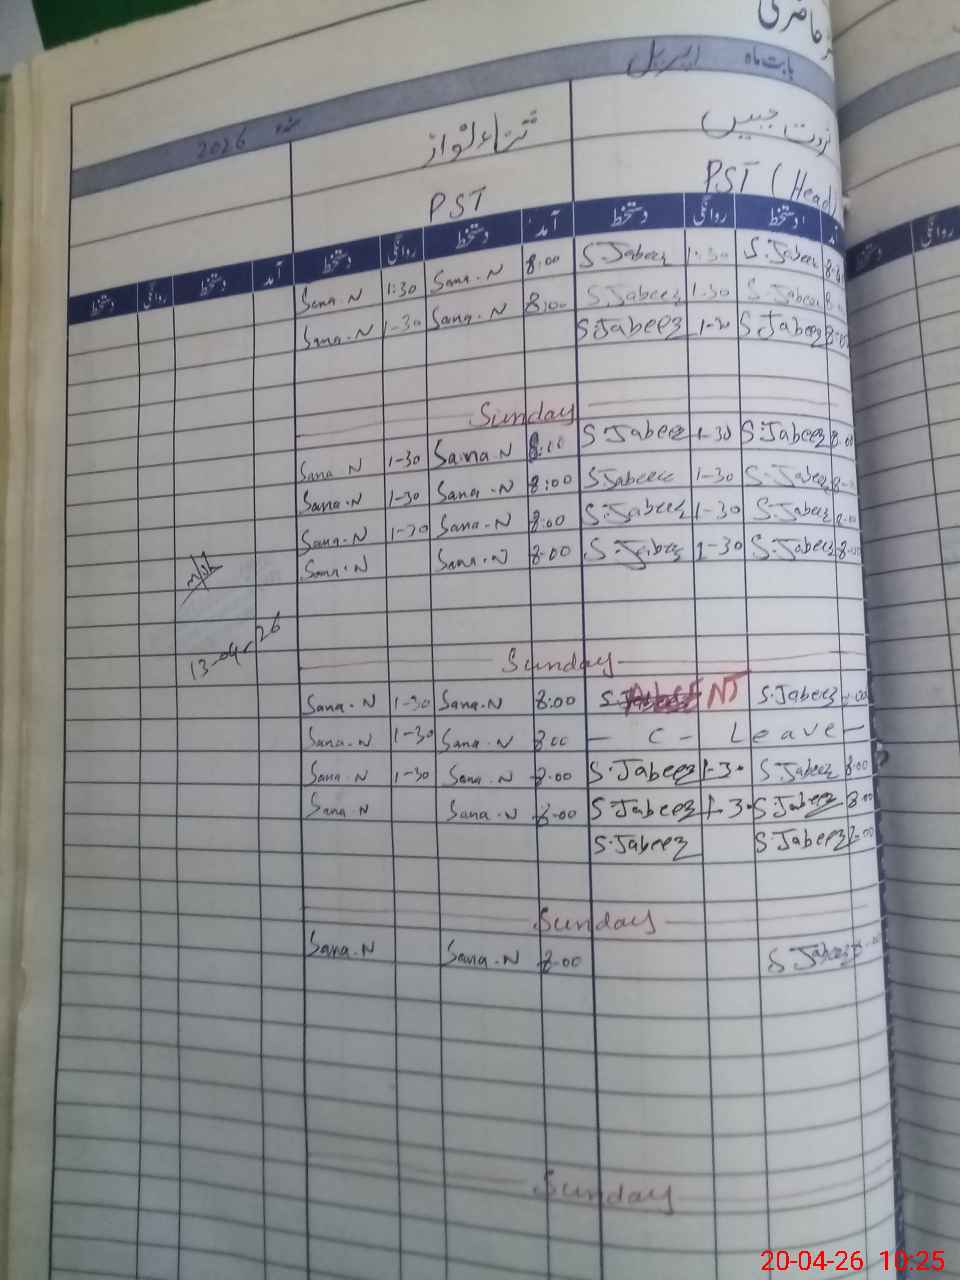 بابت ماہ اپریل
سنہ 2026
ثناء نواز
PST
PST (Head)
دستخط روانگی دستخط آمد دستخط روانگی دستخط آمد دستخط روانگی دستخط
Sana.N 1:30 Sana.N 8:00 S.Jabeez 1:30 S.Jabeez
Sana.N 1-30 Sana.N 8:00 S.Jabeez 1-30 S.Jabeez
S.Jabeez S.Jabeez 8:00
Sunday
Sana N 1-30 Sana.N 8:00 S.Jabeez 1-30 S.Jabeez 8.00
Sana.N 1-30 Sana.N 8:00 S.Jabeez 1-30 S.Jabeez
Sana.N 1-30 Sana.N 8:00 S.Jabeez 1-30 S.Jabeez 8.00
Sana.N Sana.N 8.00 S.Jabeez 1-30 S.Jabeez 8.00
13-04-26
Sunday
Sana.N 1-30 Sana.N 8:00 ABSENT S.Jabeez
Sana.N 1-30 Sana.N 8 00 - C - Leave -
Sana.N 1-30 Sana.N 8.00 S.Jabeez 1-30 S.Jabeez 8.00
Sana.N Sana.N 8-00 S.Jabeez 1-30 S.Jabeez 8.00
S.Jabeez S.Jabeez 8-00
Sunday
Sana.N Sana.N 8-00 S Jabeez
Sunday
20-04-26 10:25